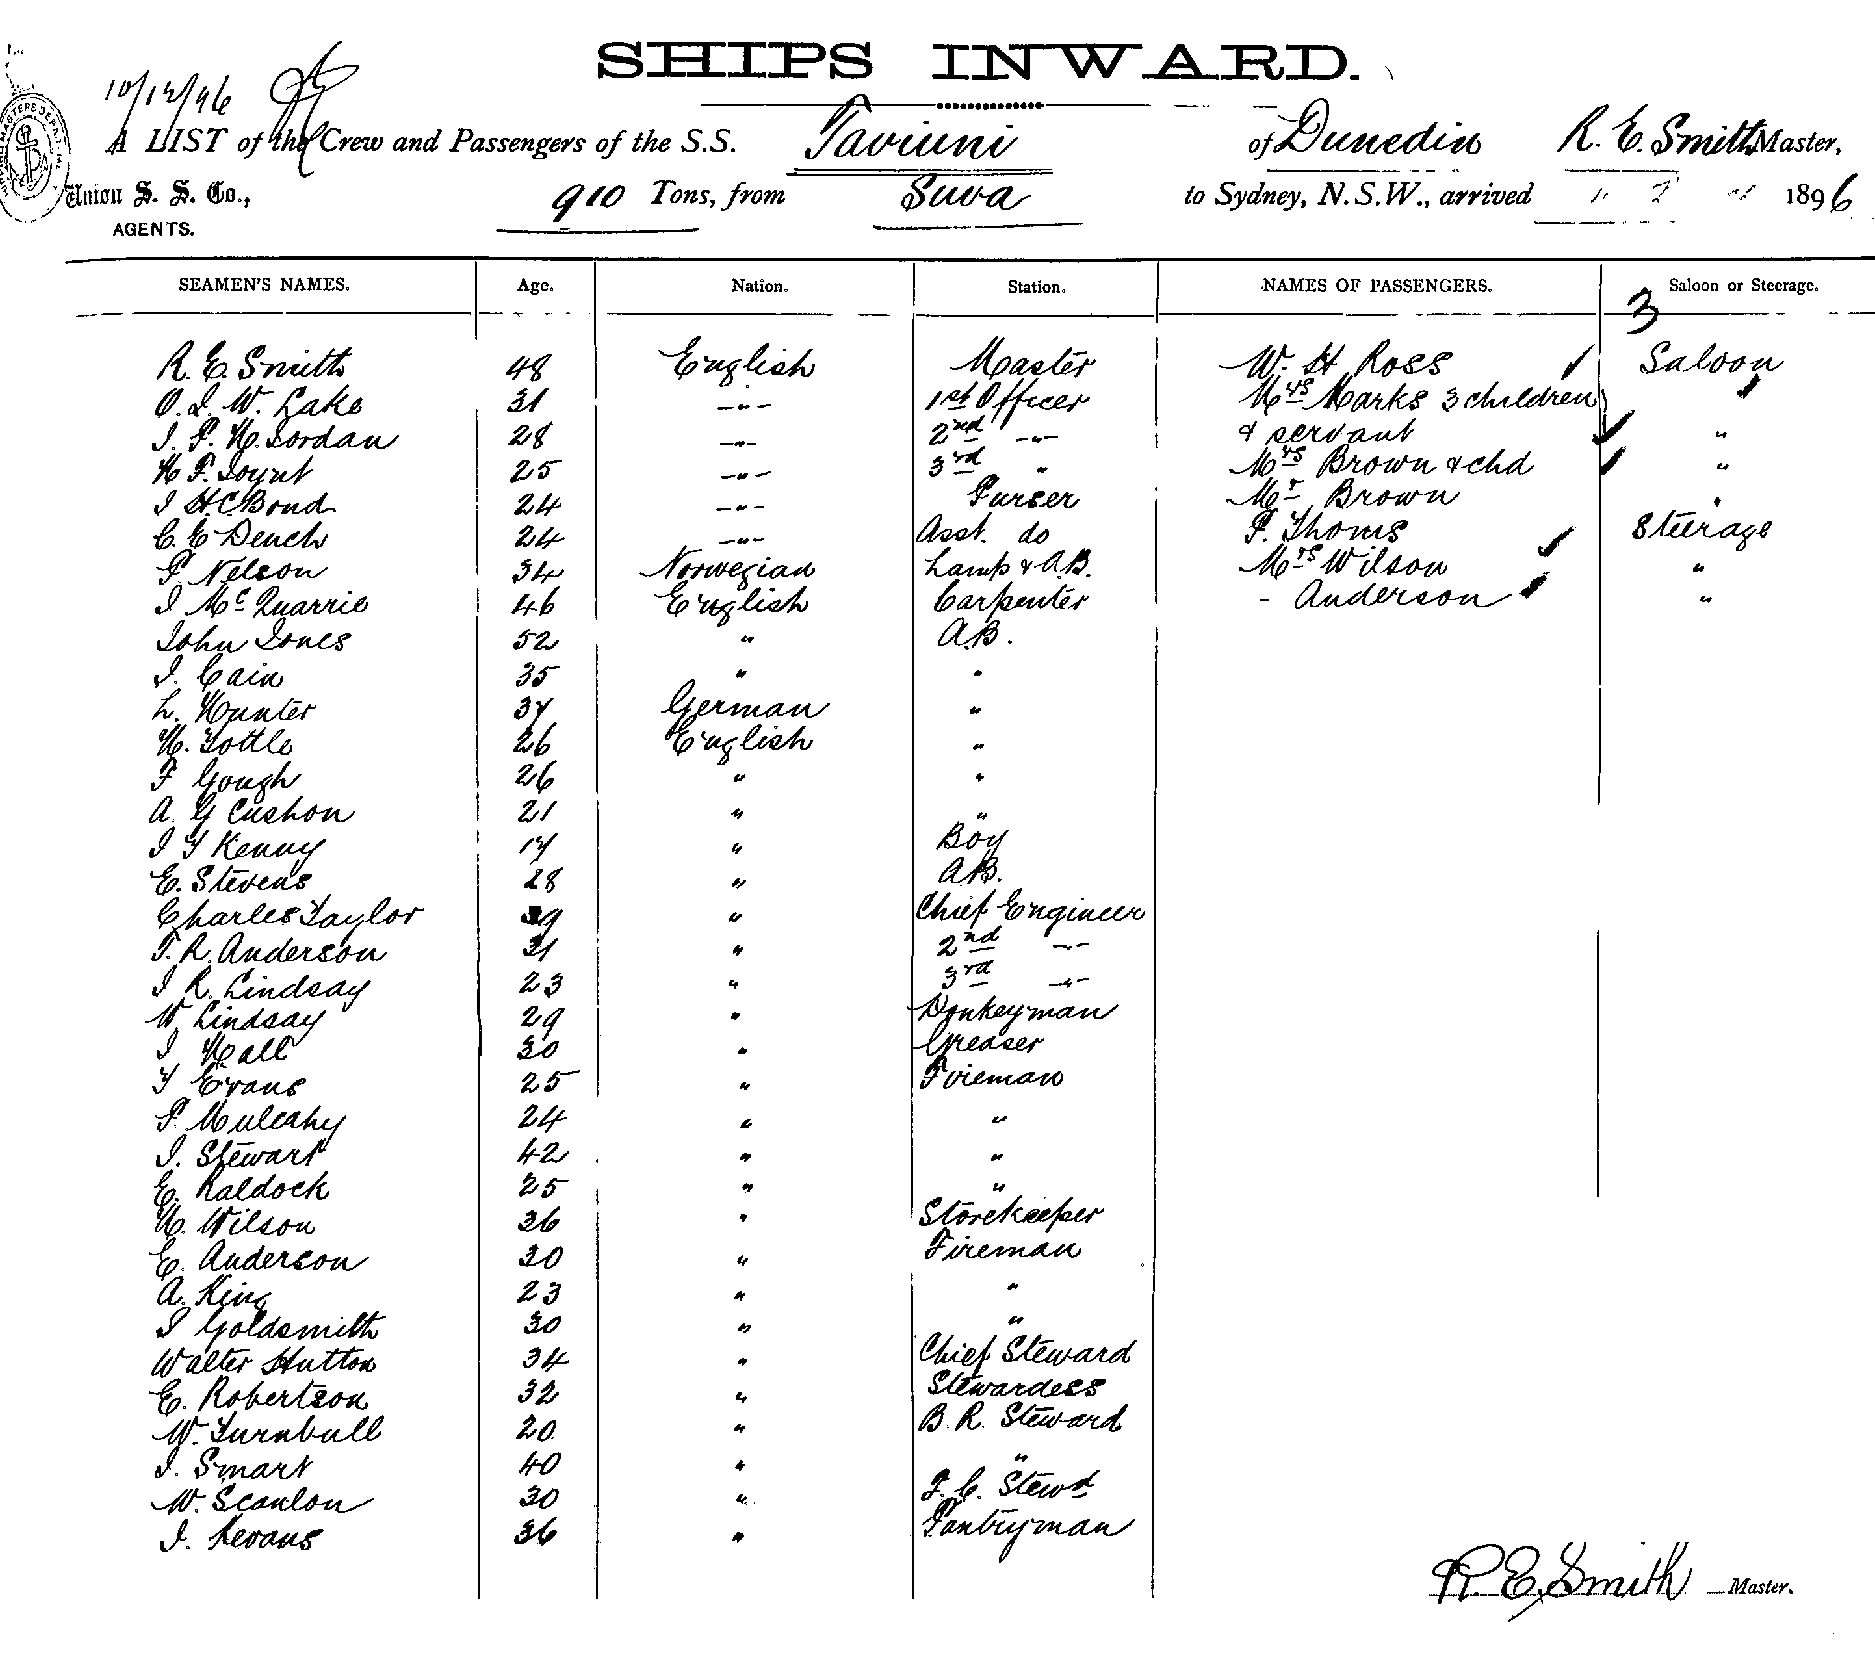 SHIPS INWARD.
10/12/96
A LIST of the Crew and Passengers of the S.S. Taviuni of Dunedin R. E. Smith Master,
Union S. S. Co., 910 Tons, from Suva to Sydney, N.S.W., arrived 1896
AGENTS.
SEAMEN'S NAMES. Age. Nation. Station. NAMES OF PASSENGERS. Saloon or Steerage.
3
R. E. Smith 48 English Master W. H Ross Saloon
O. I. W. Lake 31 -"- 1st Officer Mrs Marks 3 children
J. P. H. Jordan 28 -"- 2nd -"- & servant "
H F. Joynt 25 -"- 3rd " Mrs Brown & chd "
J H. C Bond 24 -"- Purser Mr Brown "
C. E Dench 24 -"- Asst. do P. Thoms Steerage
P. Nelson 34 Norwegian Lamp & A.B. Mrs Wilson "
J McQuarrie 46 English Carpenter - Anderson "
John Jones 52 " A.B.
J. Cain 35 " "
L. Hunter 37 German "
H. Tottle 26 English "
F Gough 26 " "
A. G Cushon 21 " "
J T Kenny 17 " Boy
E. Stevens 28 " A.B.
Charles Taylor 39 " Chief Engineer
T. R. Anderson 31 " 2nd -"-
J R. Lindsay 23 " 3rd -"-
W. Lindsay 29 " Donkeyman
J Hall 30 " Greaser
T Evans 25 " Fireman
P. Mulcahy 24 " "
J. Stewart 42 " "
E. Raldock 25 " "
H. Wilson 36 " Storekeeper
E. Anderson 30 " Fireman
A. King 23 " "
J Goldsmith 30 " "
Walter Hutton 34 " Chief Steward
E. Robertson 32 " Stewardess
W. Turnbull 20 " B. R. Steward
J. Smart 40 " "
W. Scanlon 30 " F. C. Stewd
J. Kevans 36 " Pantryman
R. E. Smith Master.